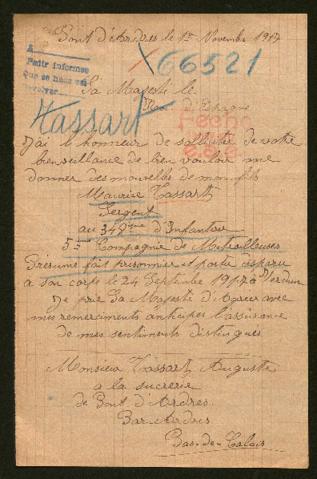 Pont d'Ardres le 1er Novembre 1917
A
Petit informes
Que se hace
66521
Sa Majesté le
Roi d'Espagne
Tassart
Fecho
J'ai l'honneur de solliciter de votre
bienveillance de bien vouloir me
donner des nouvelles de mon fils
Maurice Tassart
Sergent
au 342me d'Infanterie
3me Compagnie de Mitrailleuses
Présumé fait prisonnier et porté disparu
a son corps le 24 Septembre 1917 à Verdun
Je prie Sa Majesté d'Agreer avec
mes remerciments anticipés l'assurance
de mes sentiments distingués
Monsieur Tassart Auguste
a la sucrerie
de Pont d'Ardres
Par Ardres
Pas-de-Calais